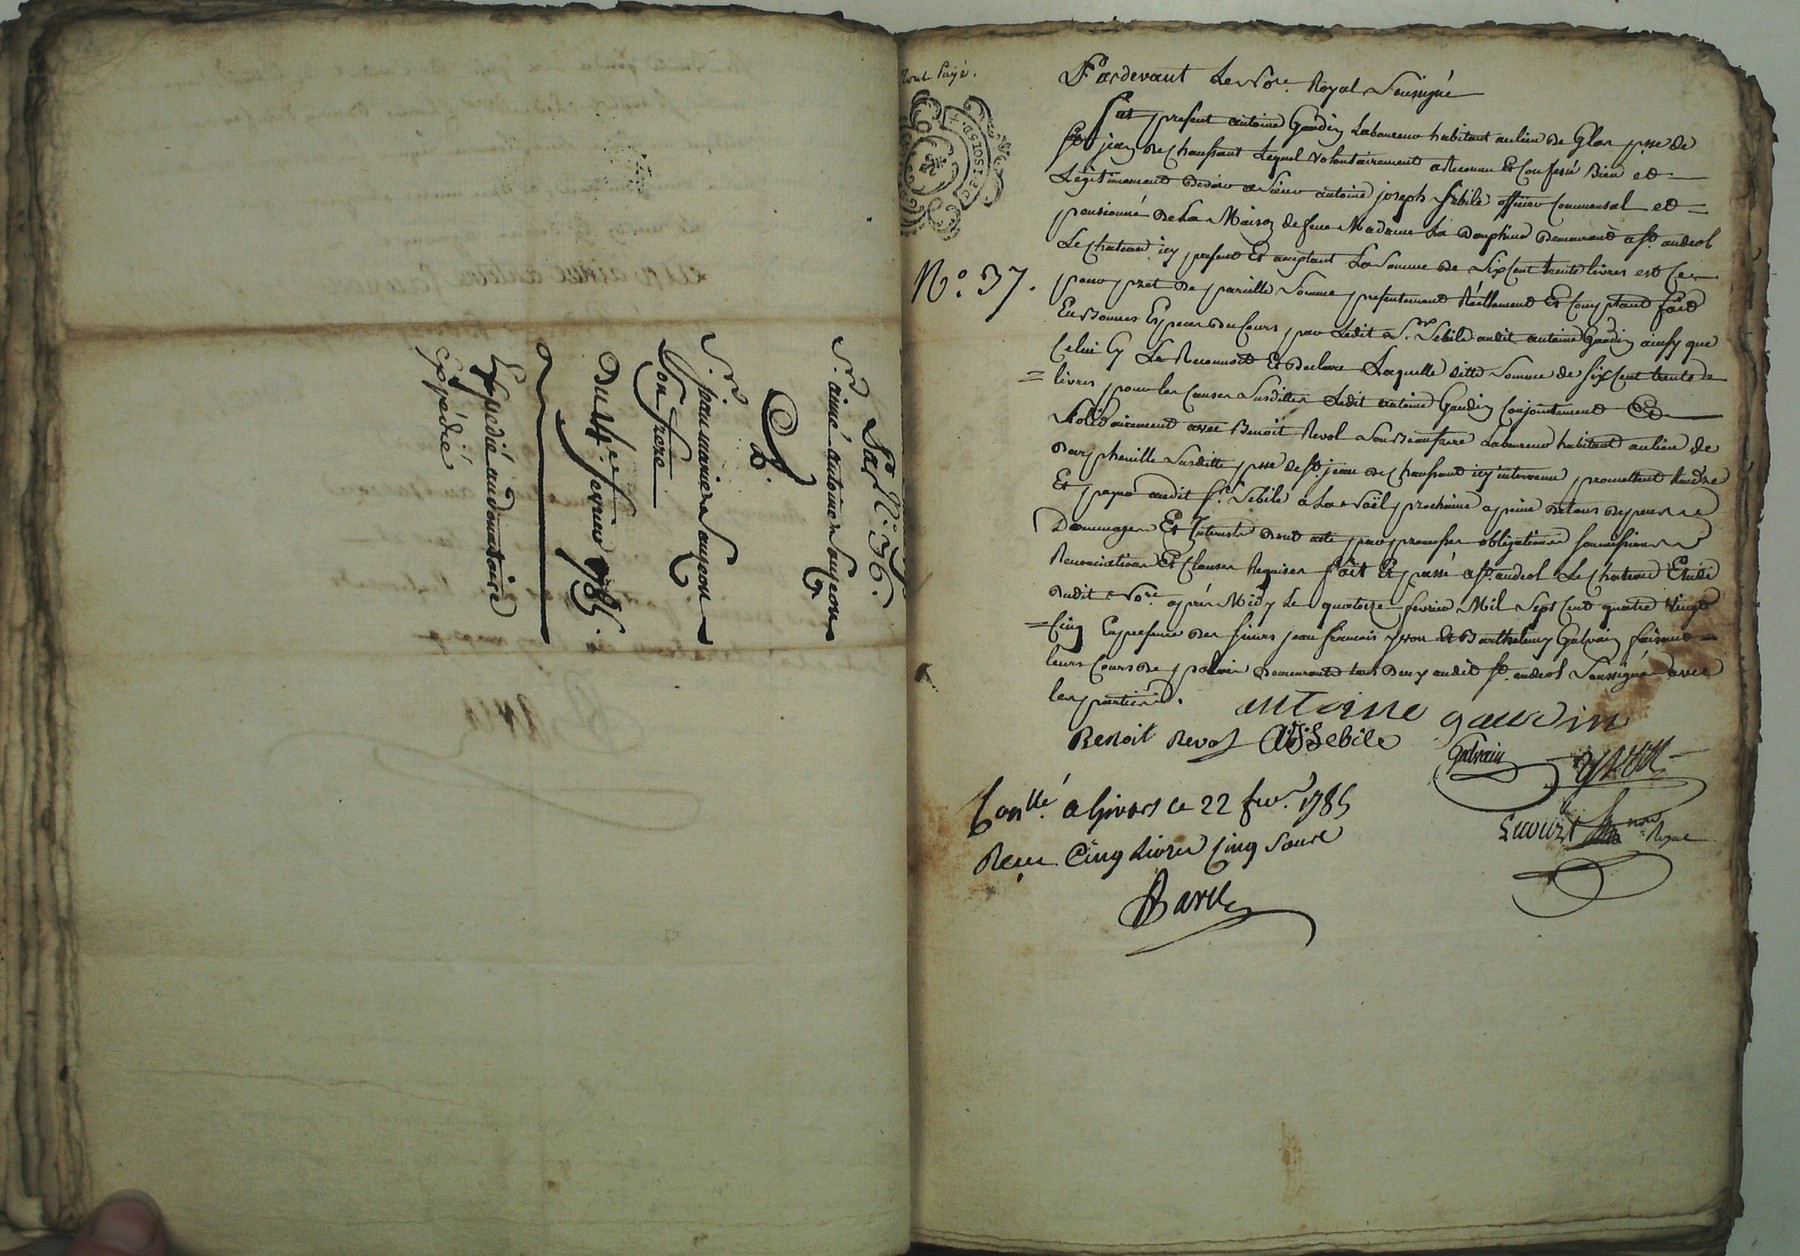 Sac N.º 36.
Sr. aimé antoine Saugeon
A
D.
Sr. jean marie Saugeon
Son frere
Du 14e. fevrier 1785.
Expedié au donataire
Expédié
tout Payé.
DE LYO 5 SOLS D.
N.º 37.
Pardevant Le Nore. Royal Soussigné
fut present antoine Gaudin Laboureur habitant au lieu de Glas psse de
St. jean de chaussant Lequel volontairement a Reconnu Et Confessé Bien et
Légitimement Devoir a Sieur antoine joseph Sebile officier Commensal et =
pensionné de La Maison de feue Madame La Dauphine Demeurant a St. andeol
Le chateau icy present Et acceptant La Somme de Six Cent trente livres est Ce
pour pret de pareille Somme presentement Réellement Et Comptant fait
En Bonnes Especes du Cours par Ledit Sr. Sebile audit antoine Gaudin ainsy que
Celui Cy Le Reconnoit Et Declare Laquelle ditte Somme de Six Cent trente
= livres pour les Causes Susdittes Ledit antoine Gaudin Conjointement Et
Solidairement avec Benoit Revol Son Beaufrere Laboureur habitant au lieu de
Susditte psse de St. jean de chaussant icy intervenu promettent Rendre
Et payer audit Sr. Sebile a La Noël prochaine a peine de tous depens
Dommages Et Interets Dont acte par promesses obligations Soumissions
Renonciations Et Clauses Requises fait Et passé a St. andeol Le chateau Etude
Dudit Nore. après Midy Le quatorze fevrier Mil Sept Cent quatre Vingt
= Cinq En presence des Sieurs jean francois yvon Et Barthelemy Galvain faisant =
leurs Cours de pratique Demeurants tous Deux audit St. andeol Soussignés avec
les parties.
antoine gaudin
Benoit Revol AJ Sebile
Galvain yvon
nore Royal
Conllé. a Givors ce 22 fevr. 1785
Reçu Cinq Livres Cinq Sous